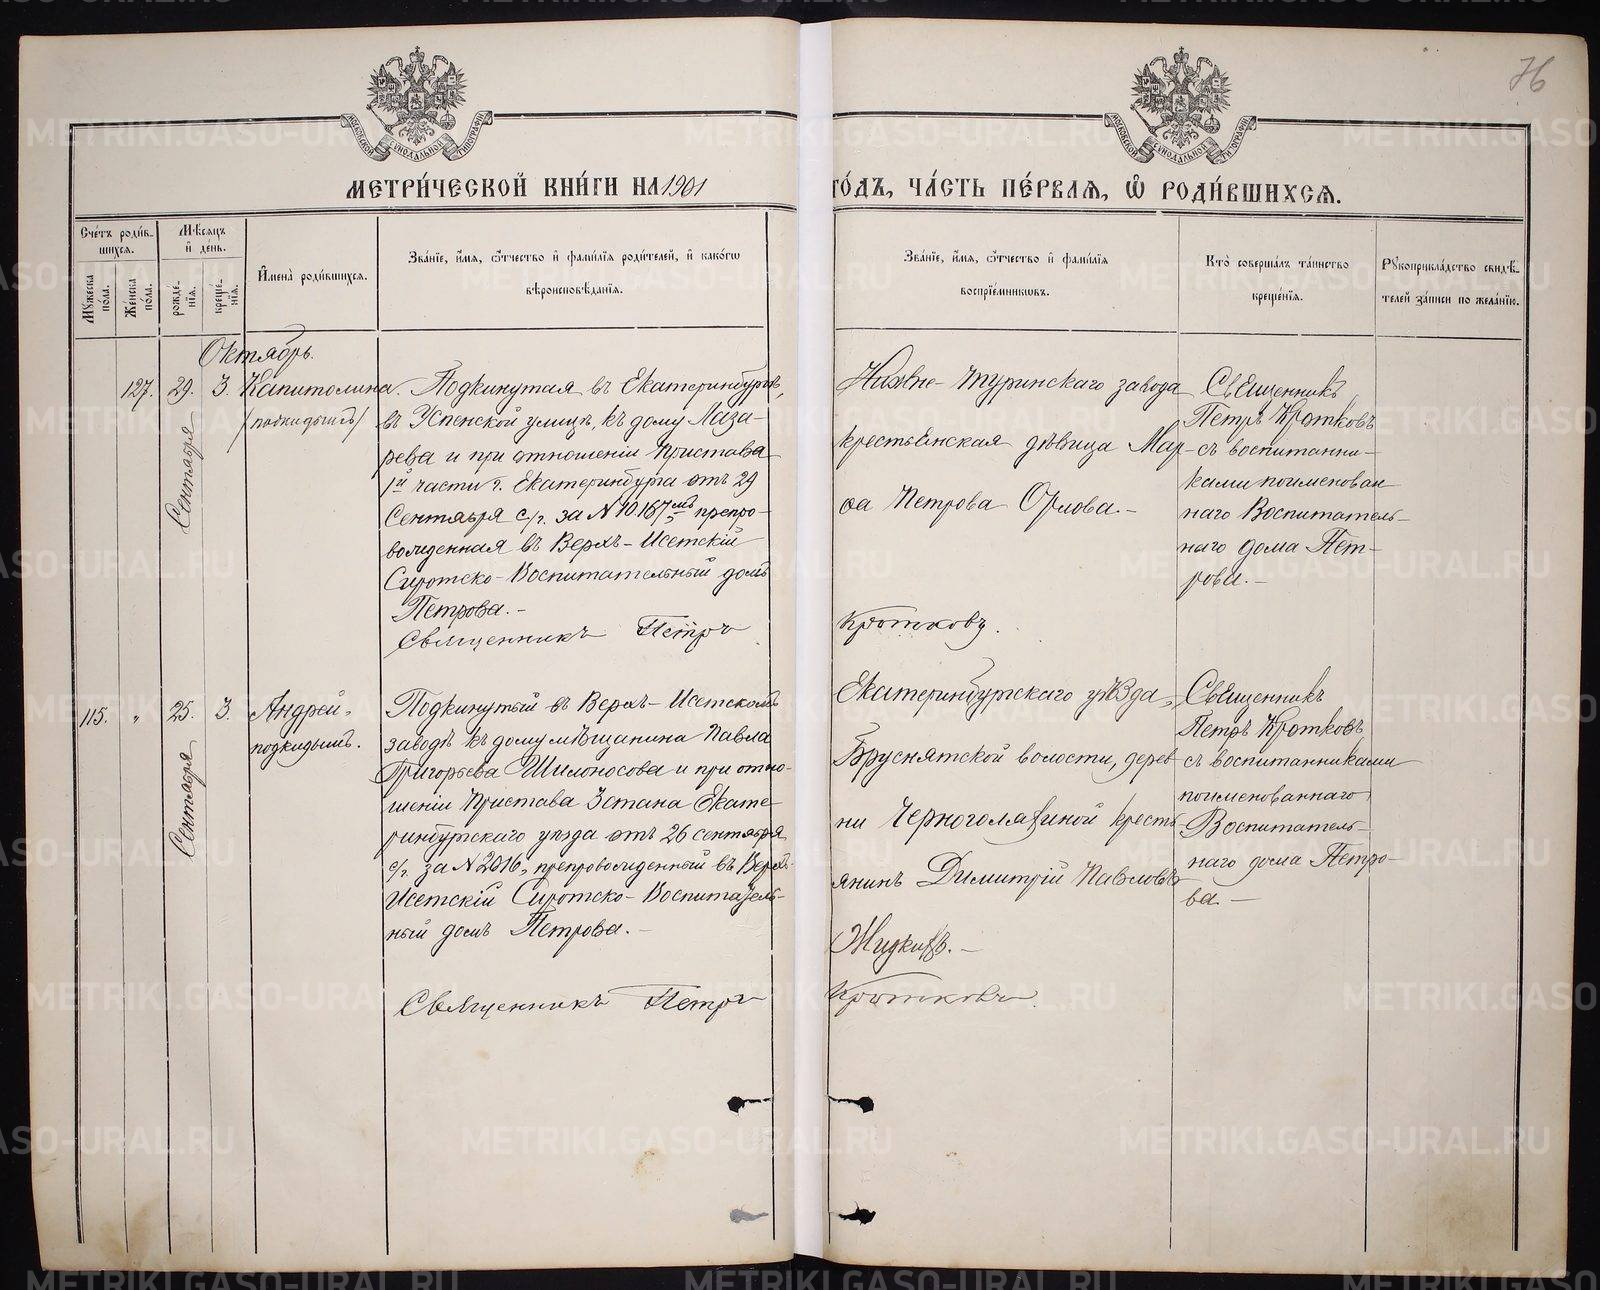 76
МЕТРИЧЕСКОЙ КНИГИ НА 1901 ГОДЪ, ЧАСТЬ ПЕРВАЯ, Ѡ РОДИВШИХСЯ.
Счетъ родившихся.
Мужеска пола.
Женска пола.
Мѣсяцъ и день.
рождения.
крещения.
Имена родившихся.
Званіе, имя, отчество и фамилія родителей, и какогѡ
вѣроисповѣданія.
Званіе, имя, отчество и фамилія
воспріемниковъ.
Кто совершалъ таинство
крещенія.
Рукоприкладство свидѣ-
телей записи по желанію.
Октябрь.
127. 29. Сентября 3. Капитолина
/подкидышъ/
Подкинутая въ Екатеринбургѣ,
въ Успенской улицѣ, къ дому Лаза-
рева и при отношеніи Пристава
1й части г. Екатеринбурга отъ 29
Сентября с/г. за N 10187мъ препро-
вожденная въ Верхъ-Исетскій
Сиротско-Воспитательный домъ
Петрова.-
Священникъ Петръ
Нижне-Туринскаго завода
крестьенская дѣвица Мар-
ѳа Петрова Орлова.-
Кротковъ.
Священникъ
Петръ Кротковъ
съ воспитанни-
ками поименован
наго Воспитатель-
наго дома Пет-
рова.-
115. " 25. Сентября 3. Андрей,
подкидышъ.
Подкинутый въ Верхъ-Исетскомъ
заводѣ къ дому мѣщанина Павла
Григорьева Шилоносова и при отно-
шеніи Пристава 3 стана Екате-
ринбургскаго уѣзда отъ 26 сентября
с/г. за N 2016, препровожденный въ Верхъ-
Исетскій Сиротско-Воспитатель-
ный домъ Петрова.-
Священникъ Петръ
Екатеринбургскаго уѣзда,
Бруснятской волости, дерев
ни Черноголовиной кресть
янинъ Димитрій Павловъ
Жидковъ.-
Кротковъ.
Священникъ
Петръ Кротковъ
съ воспитанниками
поименованнаго
Воспитатель-
наго дома Петро-
ва.-
METRIKI.GASO-URAL.RU